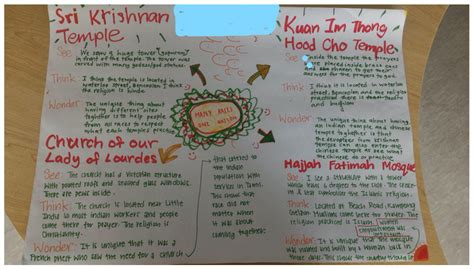 Sri Krishnan
Temple
See: We saw a huge tower (gopuram)
in front of the temple. The tower was
carved with many gods/god statues.
Think: I think the temple is located in
waterloo street, Bencoolen. I think
the religion is hinduism.
Wonder: The unique thing about
having different sites
together is to help people
from all races to respect
what each temples practice
Church of our
Lady of Lourdes
See: The church has a Victorian structure
with pointed roofs and stained glass windows.
There are pews inside.
Think: The church is located near Little
India so most Indian workers and people
come there for prayer. The religion is
Christianity.
Wonder: It is unique that it was a
French priest who saw the need for a church
MANY RACES
ONE NATION
that catered to
the Indian
population with
service in Tamil.
This shows that
race did not
matter when
it was about
coming together.
Kuan Im Thong
Hood Cho Temple
See: Inside the temple the prayers
are placed inside brass
and was used for the prayers to god.
Think: I think it is located in waterloo
street, Bencoolen and the religion
practiced there is
and buddhism.
Wonder: The unique thing about
having an Indian temple and chinese
temple together is that
the devotees from krishnan
temple can also enter the
chinese temple as see what
the chinese do as practice.
Hajjah Fatimah Mosque
See: I see a structure with a
which is 6 degrees to the side. The
and I star symbolise the Islamic religion.
Think: Located at Beach Road, Kampong
Gelam. Muslims come here for prayers. The religion
practiced is Islam.
Wonder: It is unique that the mosque
was named and built by a woman